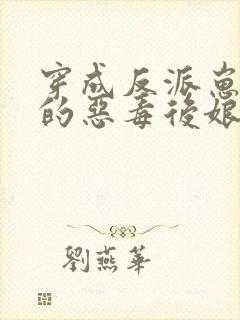 穿成反派崽
的惡毒後娘
劉燕華